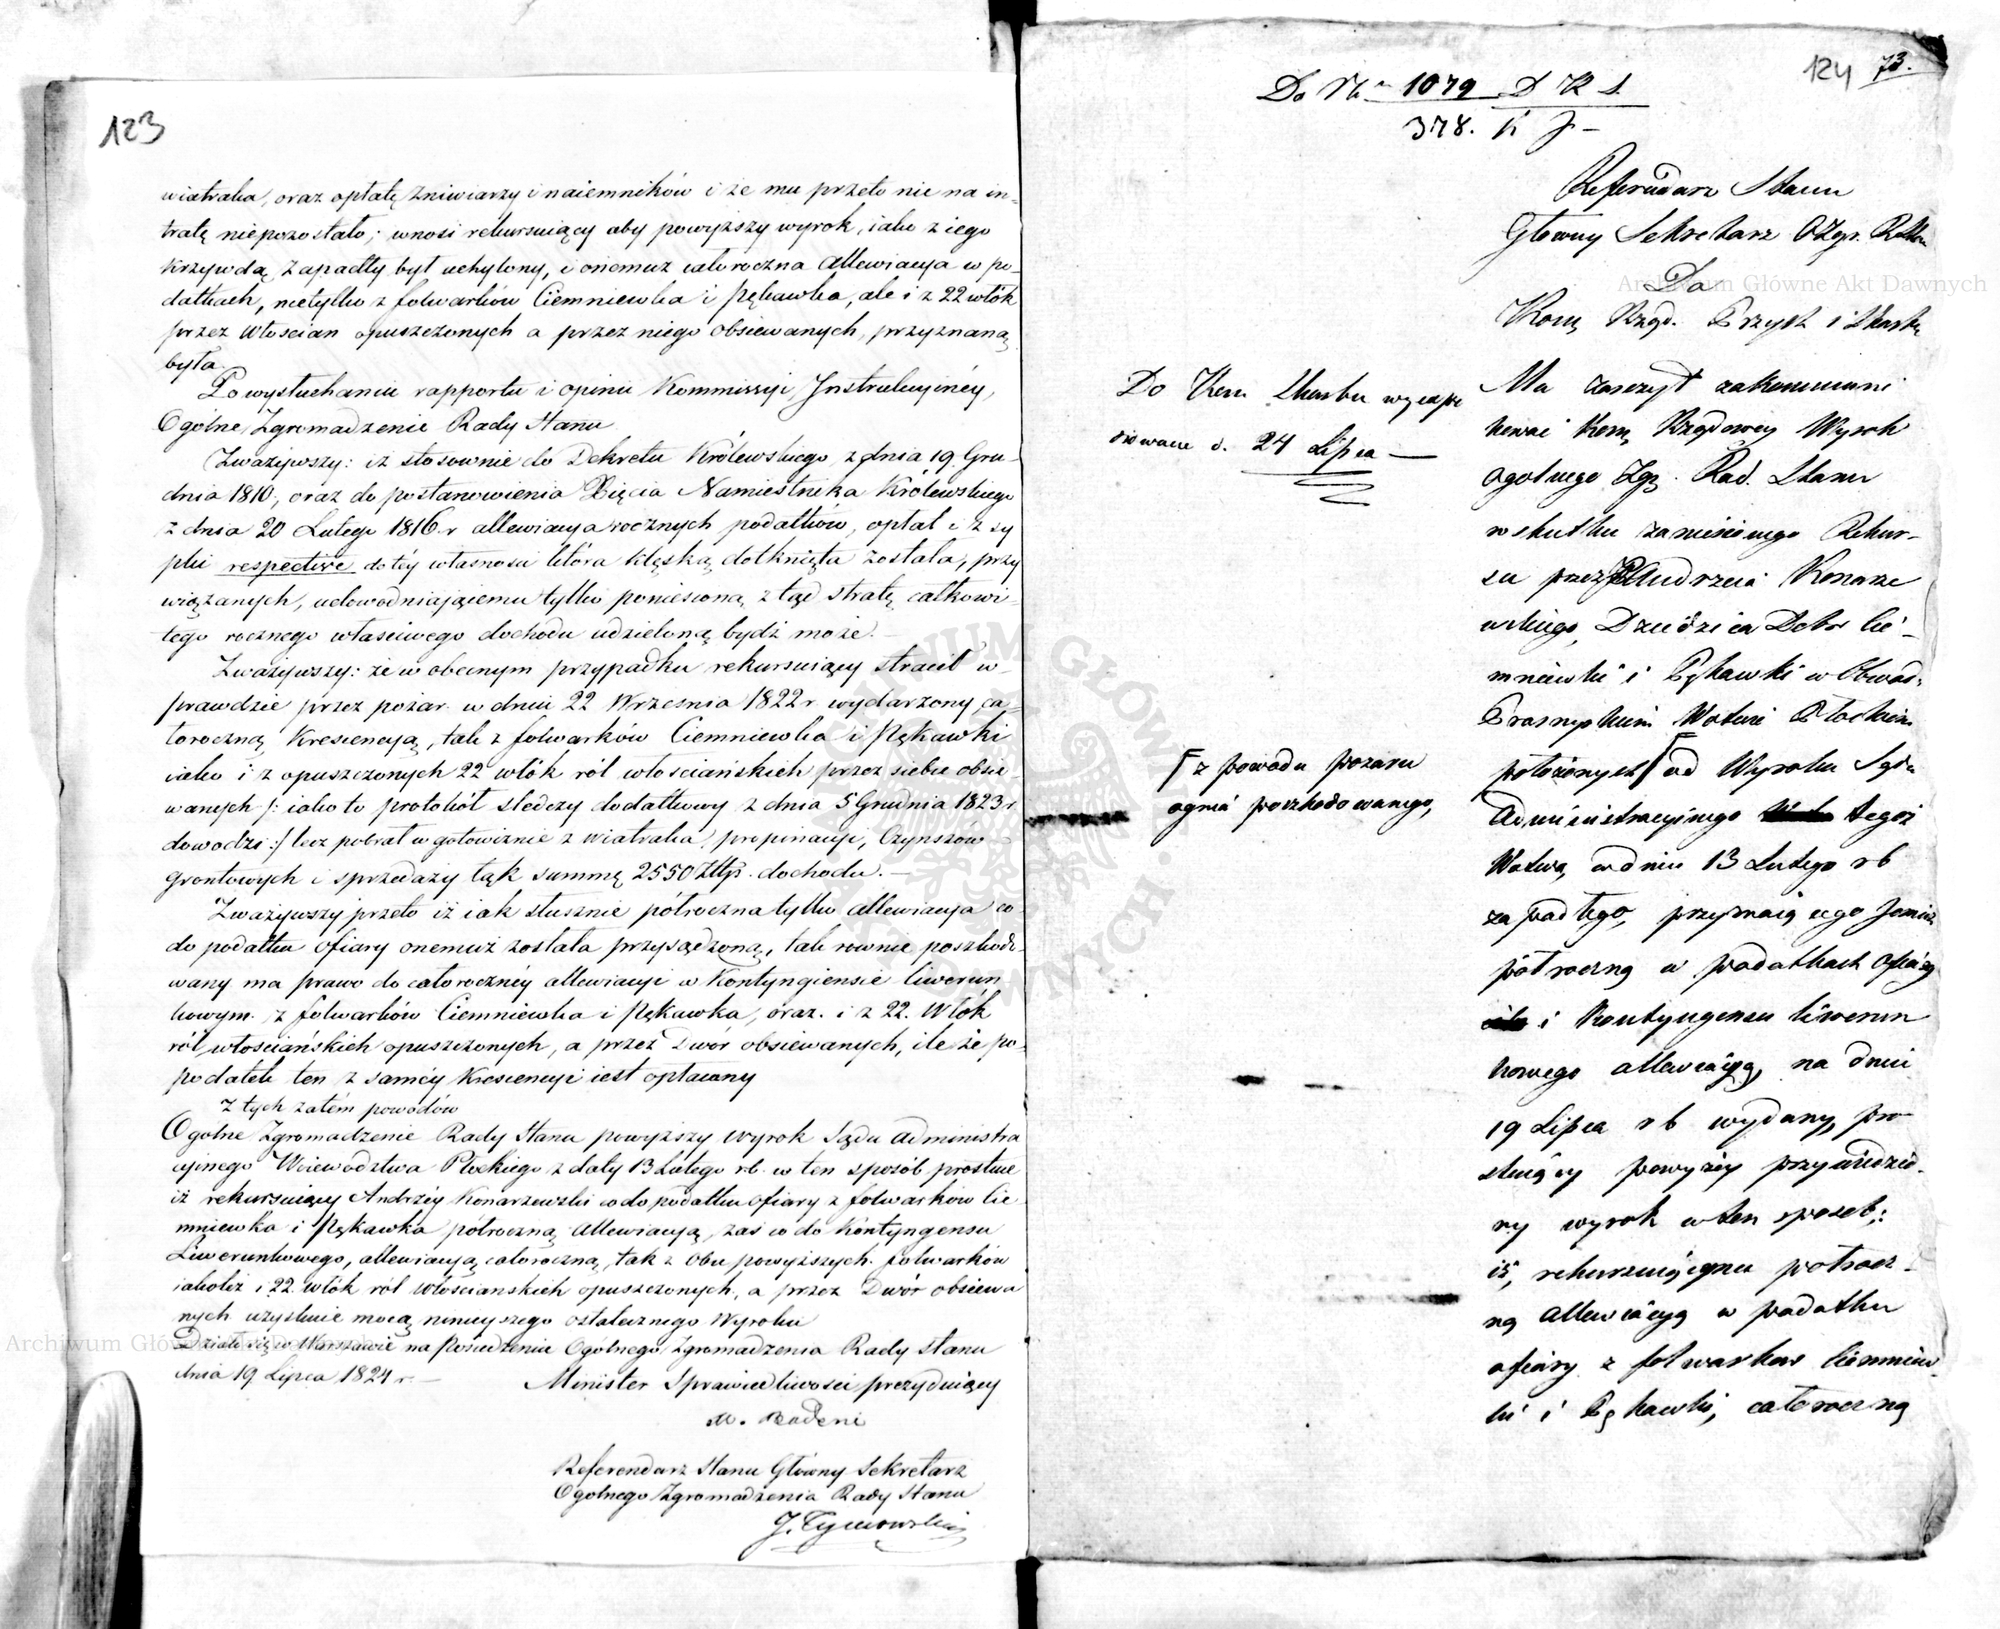 123
wiatraka, oraz opłatę żniwiarzy i naiemników i że mu przeto nie na in-
tratę niepozostało; wnosi rekursuiący aby powyższy wyrok, iako z iego
krzywdą zapadły był uchylony, i onemuż całoroczna allewiacya w po-
datkach, nietylko z folwarków Ciemniewka i Pękawka, ale i z 22 włók
przez włościan opuszczonych a przez niego obsiewanych, przyznaną
była.
Po wysłuchaniu rapportu i opinii Kommissyi Instrukcyinéy,
Ogólne Zgromadzenie Rady Stanu
Zważywszy: iż stosownie do Dekretu Królewskiego z dnia 19. Gru-
dnia 1810, oraz do postanowienia Xięcia Namiestnika Królewskiego
z dnia 20 Lutego 1816 r allewiacya rocznych podatków, opłat i z sy
pki respective do téy własności która klęską dotknięta została, przy
wiązanych, udowodniaiącemu tylko poniesioną z tąd stratę całkowi-
tego rocznego właściwego dochodu udzieloną bydź może.
Zważywszy: że w obecnym przypadku rekursuiący stracił w-
prawdzie przez pożar w dniu 22 Września 1822 r wydarzony ca-
łoroczną krescencyą, tak z folwarków Ciemniewka i Pękawki
iako i z opuszczonych 22 włók ról włościańskich przez siebie obsie-
wanych /: iako to protokół śledczy dodatkowy z dnia 5 Grudnia 1823 r
dowodzi :/ lecz pobrał w gotowiznie z wiatraka, propinacyi, Czynszów
gruntowych i sprzedaży łąk summę 2550 Złtp. dochodu. —
Zważywszy przeto iż iak słusznie półroczna tylko allewiacya co-
do podatku ofiary onemuż została przysądzoną, tak równie poszkodo-
wany ma prawo do całorocznéy allewiacyi w Kontyngiensie liwerun
kowym z folwarków Ciemniewka i Pękawka, óraz. i z 22. Włók
ról włościańskich opuszczonych, a przez Dwór obsiewanych, ile że po-
podatek ten z saméy krescencyi iest opłacany
Z tych zatém powodów
Ogólne Zgromadzenie Rady Stanu powyższy wyrok Sądu Administra
cyinego Woiewództwa Płockiego z daty 13 Lutego r.b. w ten sposób prostuie
iż rekursuiący Andrzéy Konarzewski co do podatku ofiary z folwarków Cie
mniewka i Pękawka półroczną Allewiacyą, zaś co do Kontyngensu
Liwerunkowego, allewiacyą całoroczną, tak z obu powyższych folwarków
iakoteż i 22 włók ról włościańskich opuszczonych, a przez Dwór obsiewa
nych uzyskuie mocą ninieyszego ostatecznego Wyroku
Działo się w Warszawie na Posiedzeniu Ogólnego Zgromadzenia Rady Stanu
dnia 19 Lipca 1824 r. —
Minister Sprawiedliwości prezyduiący
M. Badeni
Referendarz Stanu Główny Sekretarz
Ogólnego Zgromadzenia Rady Stanu
J. Tymowski
124 73.
Do Nr 1079 D K S.
378. K J -
Referendarz Stanu
Główny Sekretarz OZgr. R Stanu
Do
Kom Rząd. Przych i Skarbu
Do Kom Skarbu wyexpe
diowane d. 24 Lipca —
Ma zaszczyt zakommuni
kować Kom Rządowey Wyrok
Ogólnego Zgr. Rad. Stanu
w skutku zaniesionego Rekur-
su przez Andrzeia Konarze
wskiego, Dziedzica Dobr Cie-
mniewki i Pękawki w Obwod.
Prasnyskim Wdztwie Płockim
położonych od Wyroku Sądu
z powodu pożaru
ognia poszkodowanego,
Administracyinego tegoż
Wdztwa, w dniu 13 Lutego r b
zapadłego, przyznaiącego Jemuż
półroczną w podatkach Ofiary
i Kontyngensu liwerun
kowego allewiacyą, na dniu
19 Lipca r b wydany, pro
stuiący powyżey przywiedzio-
ny wyrok w ten sposób:
iż, rekursuiącemu półrocz-
ną allewiacyą w podatku
ofiary z folwarków Ciemniew-
ki i Pękawki, całoroczną
Archiwum Główne Akt Dawnych
Archiwum Główne Akt Dawnych